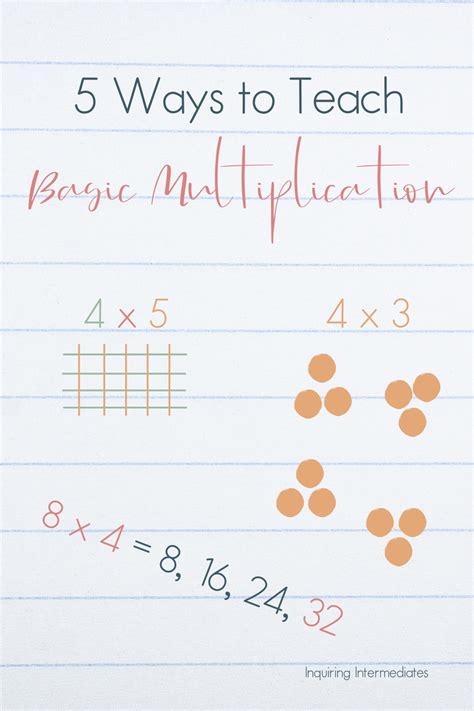 5 Ways to Teach
Basic Multiplication
4 x 5
4 x 3
8 x 4 = 8, 16, 24, 32
Inquiring Intermediates